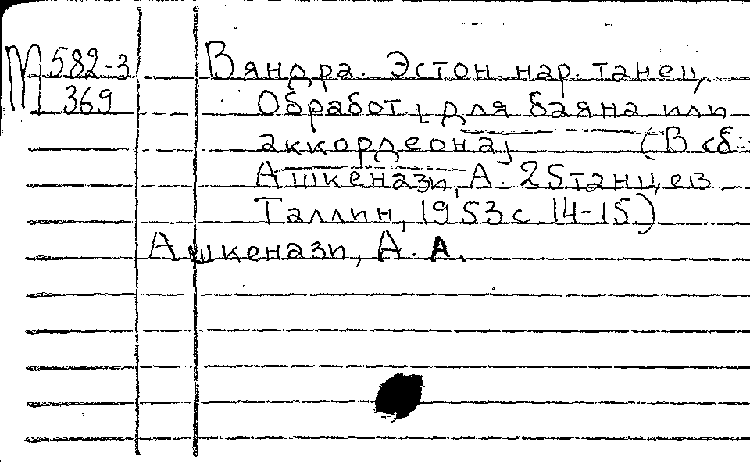 М 582-3 Вяндра. Эстон. нар. танец,
369 Обработ. для баяна или
аккордеона, (В сб.:
Ашкенази, А. 25 танцев
Таллин, 1953 с 14-15.)
Ашкенази, А. А.